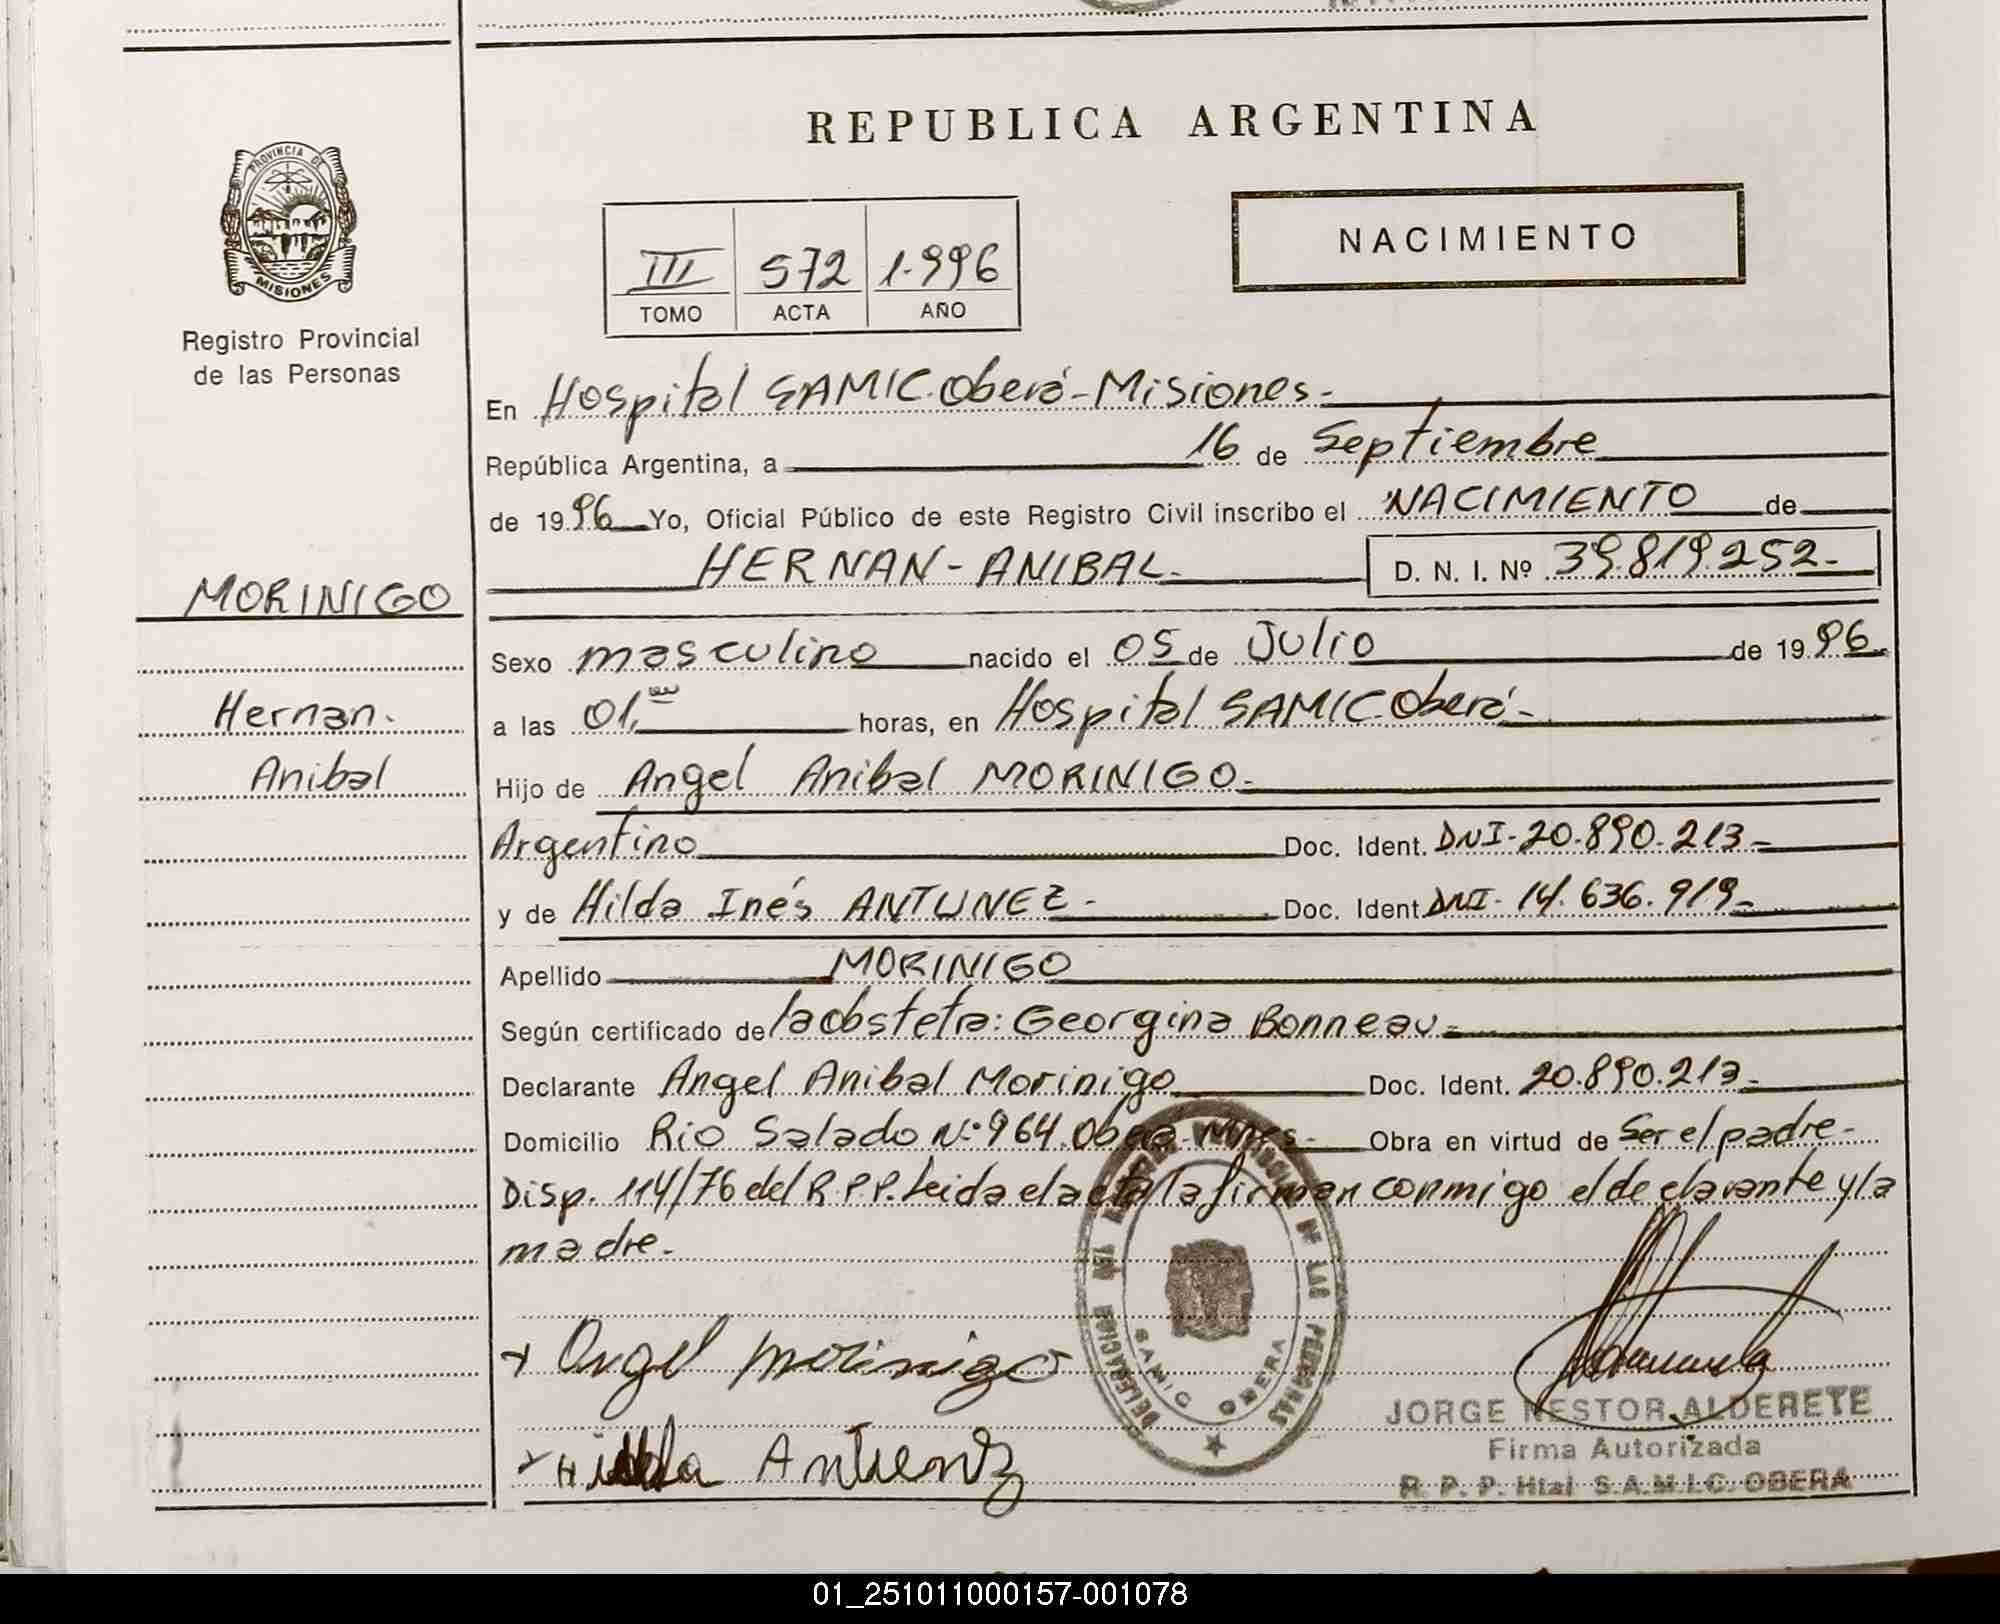 REPUBLICA ARGENTINA
PROVINCIA DE
MISIONES
Registro Provincial
de las Personas
NACIMIENTO
III 572 1.996
TOMO ACTA AÑO
En Hospital SAMIC. Oberá - Misiones.-
República Argentina, a 16 de Septiembre
de 1996 Yo, Oficial Público de este Registro Civil inscribo el NACIMIENTO de
HERNAN - ANIBAL.- D. N. I. Nº 39.819.252.-
MORINIGO
Hernan.
Anibal
Sexo masculino nacido el 05 de Julio de 1996.
a las 01, horas, en Hospital SAMIC. Oberá.-
Hijo de Angel Anibal MORINIGO.-
Argentino Doc. Ident. DNI-20.890.213.-
y de Hilda Inés ANTUNEZ.- Doc. Ident DNI-14.636.919.-
Apellido MORINIGO
Según certificado de la obstetra: Georgina Bonneau.-
Declarante Angel Anibal Morinigo Doc. Ident. 20.890.213.-
Domicilio Rio Salado Nº 964. Oberá-Mnes.- Obra en virtud de Ser el padre.-
Disp. 114/76 del R.P.P. Leida el acta la firman conmigo el declarante y la
madre.-
Angel Morinigo
DELEGACION DE LAS PERSONAS
SAMIC OBERA
JORGE NESTOR ALDERETE
Firma Autorizada
R. P. P. Htal S.A.M.I.C. OBERA
Hilda
01_251011000157-001078